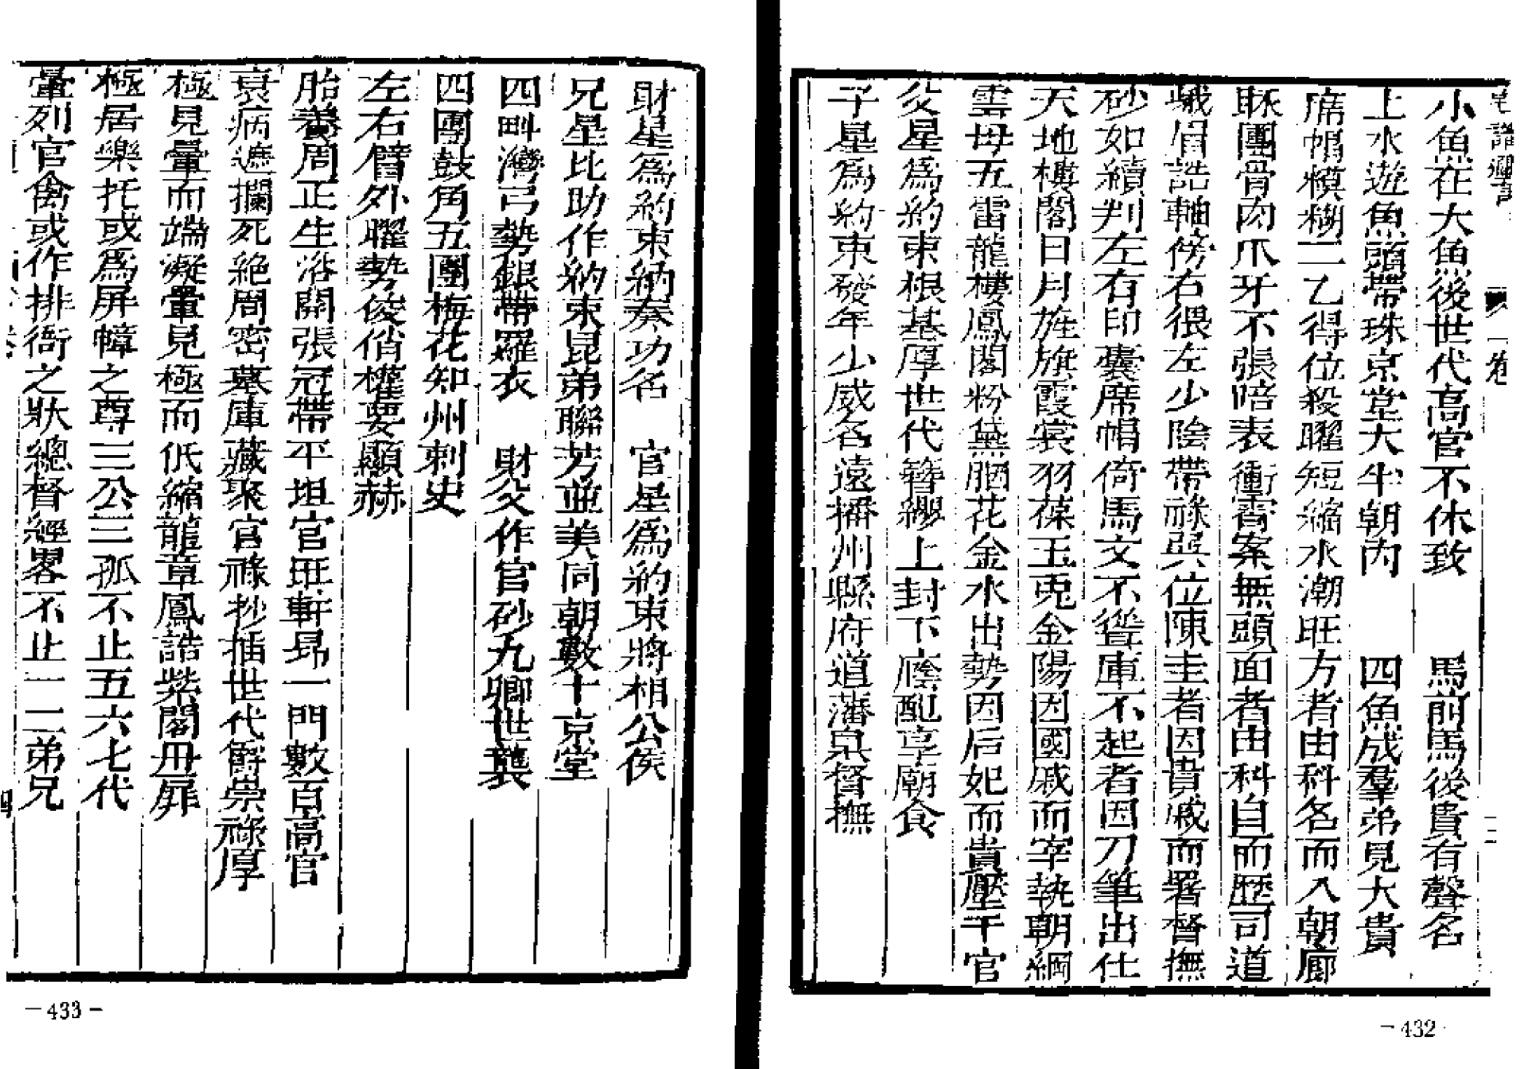 小魚在大魚後世代高官不休致　馬前馬後貴有聲名
上水遊魚頭帶珠京堂大半朝內　四魚成羣弟見大貴
席帽模糊二乙得位殺曜短縮水潮旺方者由科名而入朝廊
脉團骨肉爪牙不張暗表衝霄案無頭面者由科自而歷司道
峨眉誥軸傍右偎左少陰帶祿與位陳圭者因貴戚而署督撫
砂如續判左有印囊席帽倚馬文不聳庫不起者因刀筆出仕
天地樓閣日月旌旗霞裳羽葆玉兎金陽因國戚而宰執朝綱
雲母五雷龍樓鳳閣粉黛胭花金水出勢因后妃而貴壓千官
父星爲約束根基厚世代簪纓上封下廕配享廟食
子星爲約束發年少威名遠播州縣府道藩臬督撫
－432－
財星爲約束納奏功名　官星爲約束將相公侯
兄星比助作約束昆弟聯芳並美同朝數十京堂
四畔灣弓勢銀帶羅衣　財父作官砂九卿世襲
四團鼓角五團梅花知州刺史
左右臂外曜勢俊俏權要顯赫
胎養周正生浴關張冠帶平坦官旺軒昻一門數百高官
衰病遮攔死絕周密墓庫藏聚官祿抄插世代爵崇祿厚
極見暈而端凝暈見極而低縮龍章鳳誥紫閣丹扉
極居樂托或爲屏幛之尊三公三孤不止五六七代
暈列官禽或作排衙之狀總督經畧不止一二弟兄
－433－